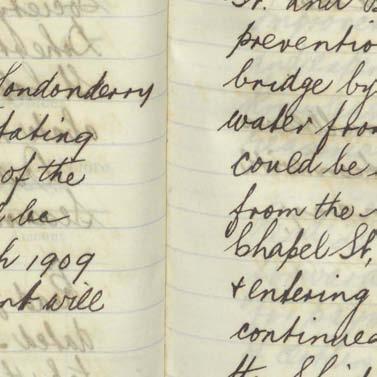 Londonderry
tating
of the
be
h 1909
nt will
St. and
preventio
bridge by
water from
could be
from the
Chapel St,
+ entering
continued